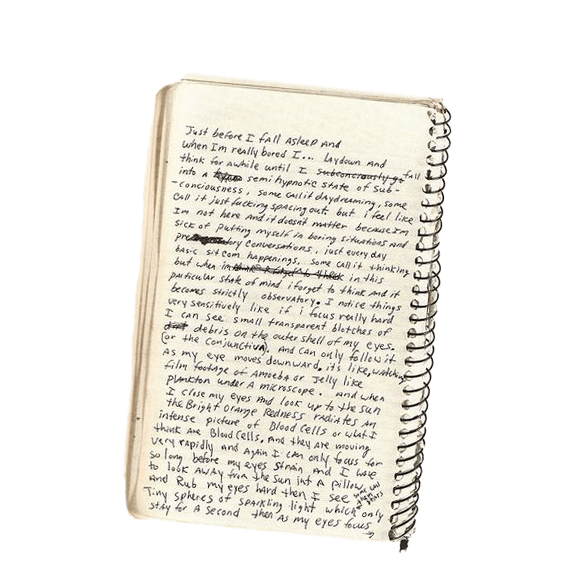 Just before I fall asleep and
when Im really bored I... laydown And
think for awhile until I subconsciously go fall
into a semi hypnotic state of sub-
-conciousness, some call it daydreaming, some
call it just fucking spacing out but i feel like
Im not here And it doesnt matter because Im
sick of putting myself in boring situations and
conversations, just every day
basic sitcom happenings, some call it thinking
but when im in this
particular state of mind i forget to think and it
becomes strictly observatory. I notice things
very sensitively like if i focus really hard
I can see small transparent blotches of
debris on the outer shell of my eyes.
(or the conjunctiva). And can only follow it
As my eye moves downward, its like, watching
film footage of Amoeba or Jelly like
plankton under A microscope. And when
I close my eyes And look up to the sun
the Bright orange Redness radiates An
intense picture of Blood cells or what I
think are Blood Cells. And they are moving
very rapidly and Again I can only focus for
so long before my eyes strain and I have
to look AWAY from the sun into a pillow
And Rub my eyes hard then I see
some call them stars
Tiny spheres of sparkling light which only
stay for A second then As my eyes focus